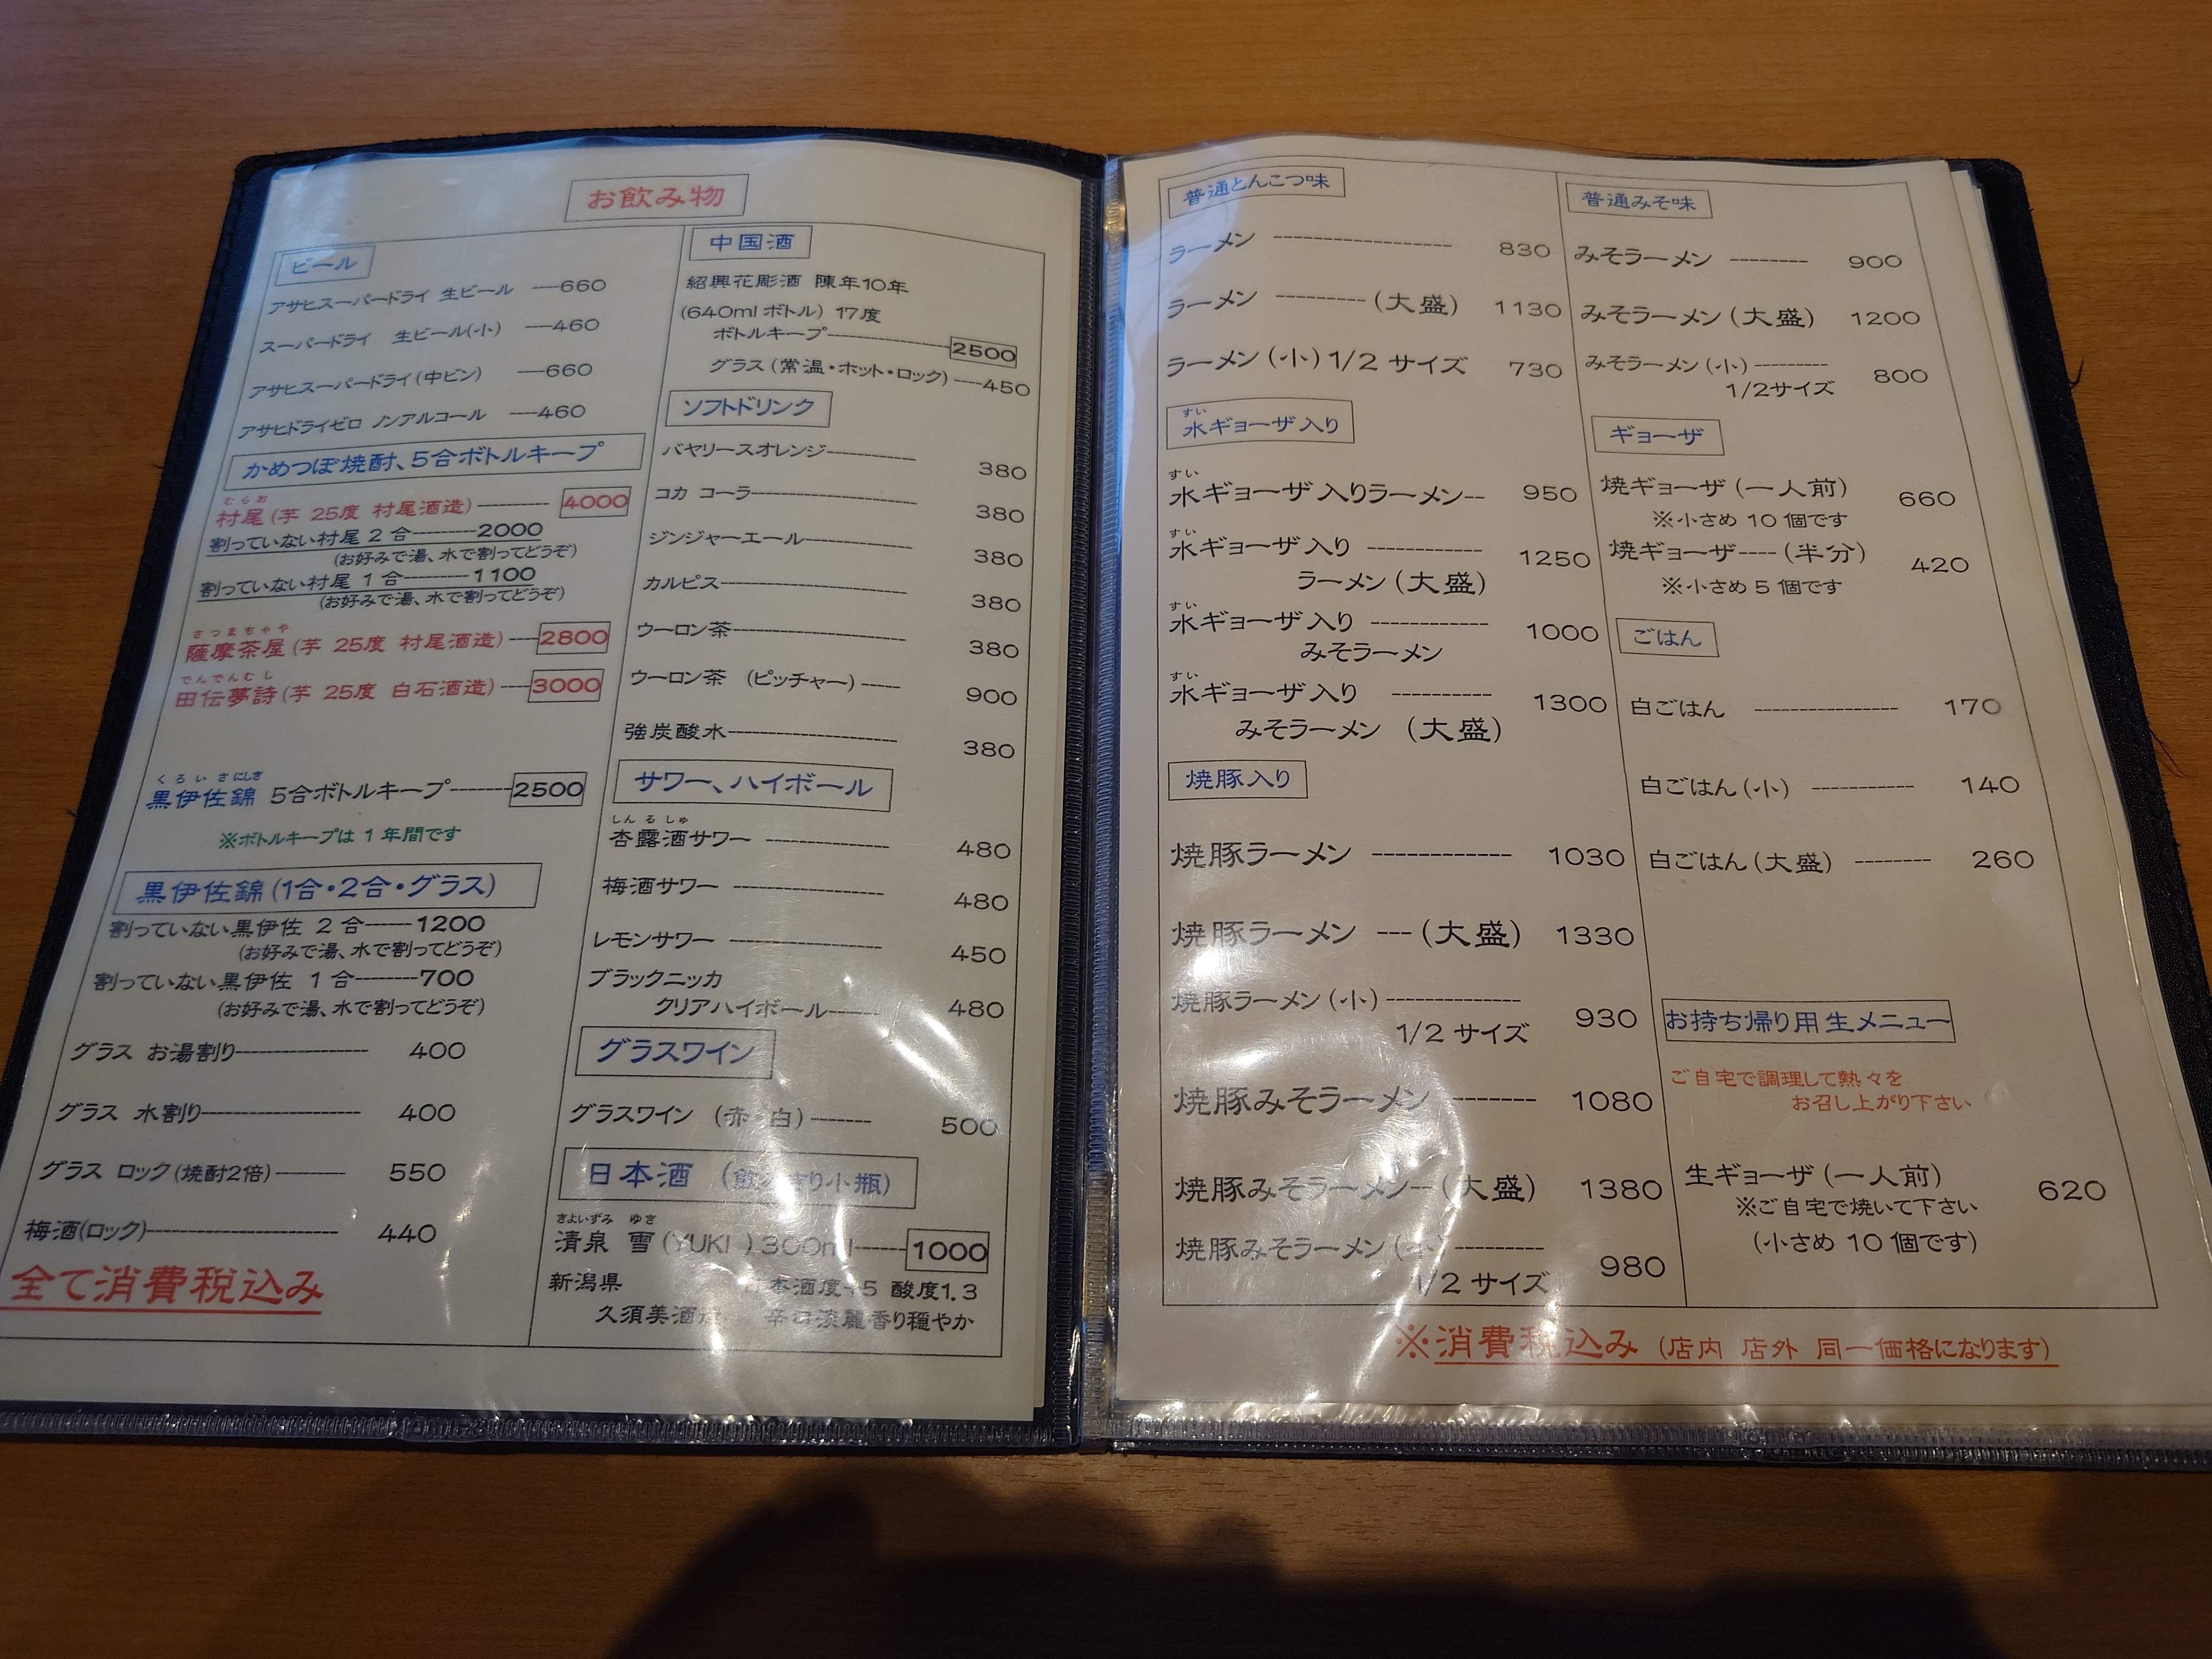 お飲み物
ビール
アサヒスーパードライ 生ビール ---660
スーパードライ 生ビール(小) ---460
アサヒスーパードライ(中ビン) ---660
アサヒドライゼロ ノンアルコール ---460
かめつぼ焼酎、5合ボトルキープ
むらお
村尾(芋 25度 村尾酒造)--------- 4000
割っていない村尾 2 合---------2000
(お好みで湯、水で割ってどうぞ)
割っていない村尾 1 合---------1100
(お好みで湯、水で割ってどうぞ)
さつまちゃや
薩摩茶屋(芋 25度 村尾酒造)---2800
でんでんむし
田伝夢詩(芋 25度 白石酒造)---3000
くろいさにしき
黒伊佐錦 5合ボトルキープ-------2500
※ボトルキープは 1 年間です
黒伊佐錦(1合・2合・グラス)
割っていない黒伊佐 2 合-----1200
(お好みで湯、水で割ってどうぞ)
割っていない黒伊佐 1 合-------700
(お好みで湯、水で割ってどうぞ)
グラス お湯割り--------------- 400
グラス 水割り------------------ 400
グラス ロック(焼酎2倍)-------- 550
梅酒(ロック)-------------------- 440
全て消費税込み
中国酒
紹興花彫酒 陳年10年
(640ml ボトル) 17度
ボトルキープ---------------2500
グラス(常温・ホット・ロック)---450
ソフトドリンク
バヤリースオレンジ---------- 380
コカ コーラ------------------- 380
ジンジャーエール------------ 380
カルピス---------------------- 380
ウーロン茶-------------------- 380
ウーロン茶 (ピッチャー)----- 900
強炭酸水--------------------- 380
サワー、ハイボール
しんるしゅ
杏露酒サワー --------------- 480
梅酒サワー ------------------ 480
レモンサワー ---------------- 450
ブラックニッカ
クリアハイボール------ 480
グラスワイン
グラスワイン (赤・白)------- 500
日本酒 (飲みきり小瓶)
きよいずみ ゆき
清泉 雪(YUKI )300ml------1000
新潟県 日本酒度+5 酸度1.3
久須美酒造 辛口淡麗香り穏やか
普通とんこつ味
ラーメン -------------------- 830
ラーメン ----------(大盛) 1130
ラーメン(小)1/2 サイズ 730
すい
水ギョーザ入り
すい
水ギョーザ入りラーメン-- 950
すい
水ギョーザ入り ------------- 1250
ラーメン(大盛)
すい
水ギョーザ入り ------------- 1000
みそラーメン
すい
水ギョーザ入り ----------- 1300
みそラーメン (大盛)
焼豚入り
焼豚ラーメン ------------- 1030
焼豚ラーメン ---(大盛) 1330
焼豚ラーメン(小)-------------- 930
1/2 サイズ
焼豚みそラーメン -------- 1080
焼豚みそラーメン--(大盛) 1380
焼豚みそラーメン(小)--------- 980
1/2 サイズ
普通みそ味
みそラーメン -------- 900
みそラーメン(大盛) 1200
みそラーメン(小)--------- 800
1/2サイズ
ギョーザ
焼ギョーザ(一人前) 660
※小さめ 10 個です
焼ギョーザ----(半分) 420
※小さめ 5 個です
ごはん
白ごはん ---------------- 170
白ごはん(小) ----------- 140
白ごはん(大盛) -------- 260
お持ち帰り用生メニュー
ご自宅で調理して熱々を
お召し上がり下さい
生ギョーザ(一人前) 620
※ご自宅で焼いて下さい
(小さめ 10 個です)
※消費税込み (店内 店外 同一価格になります)